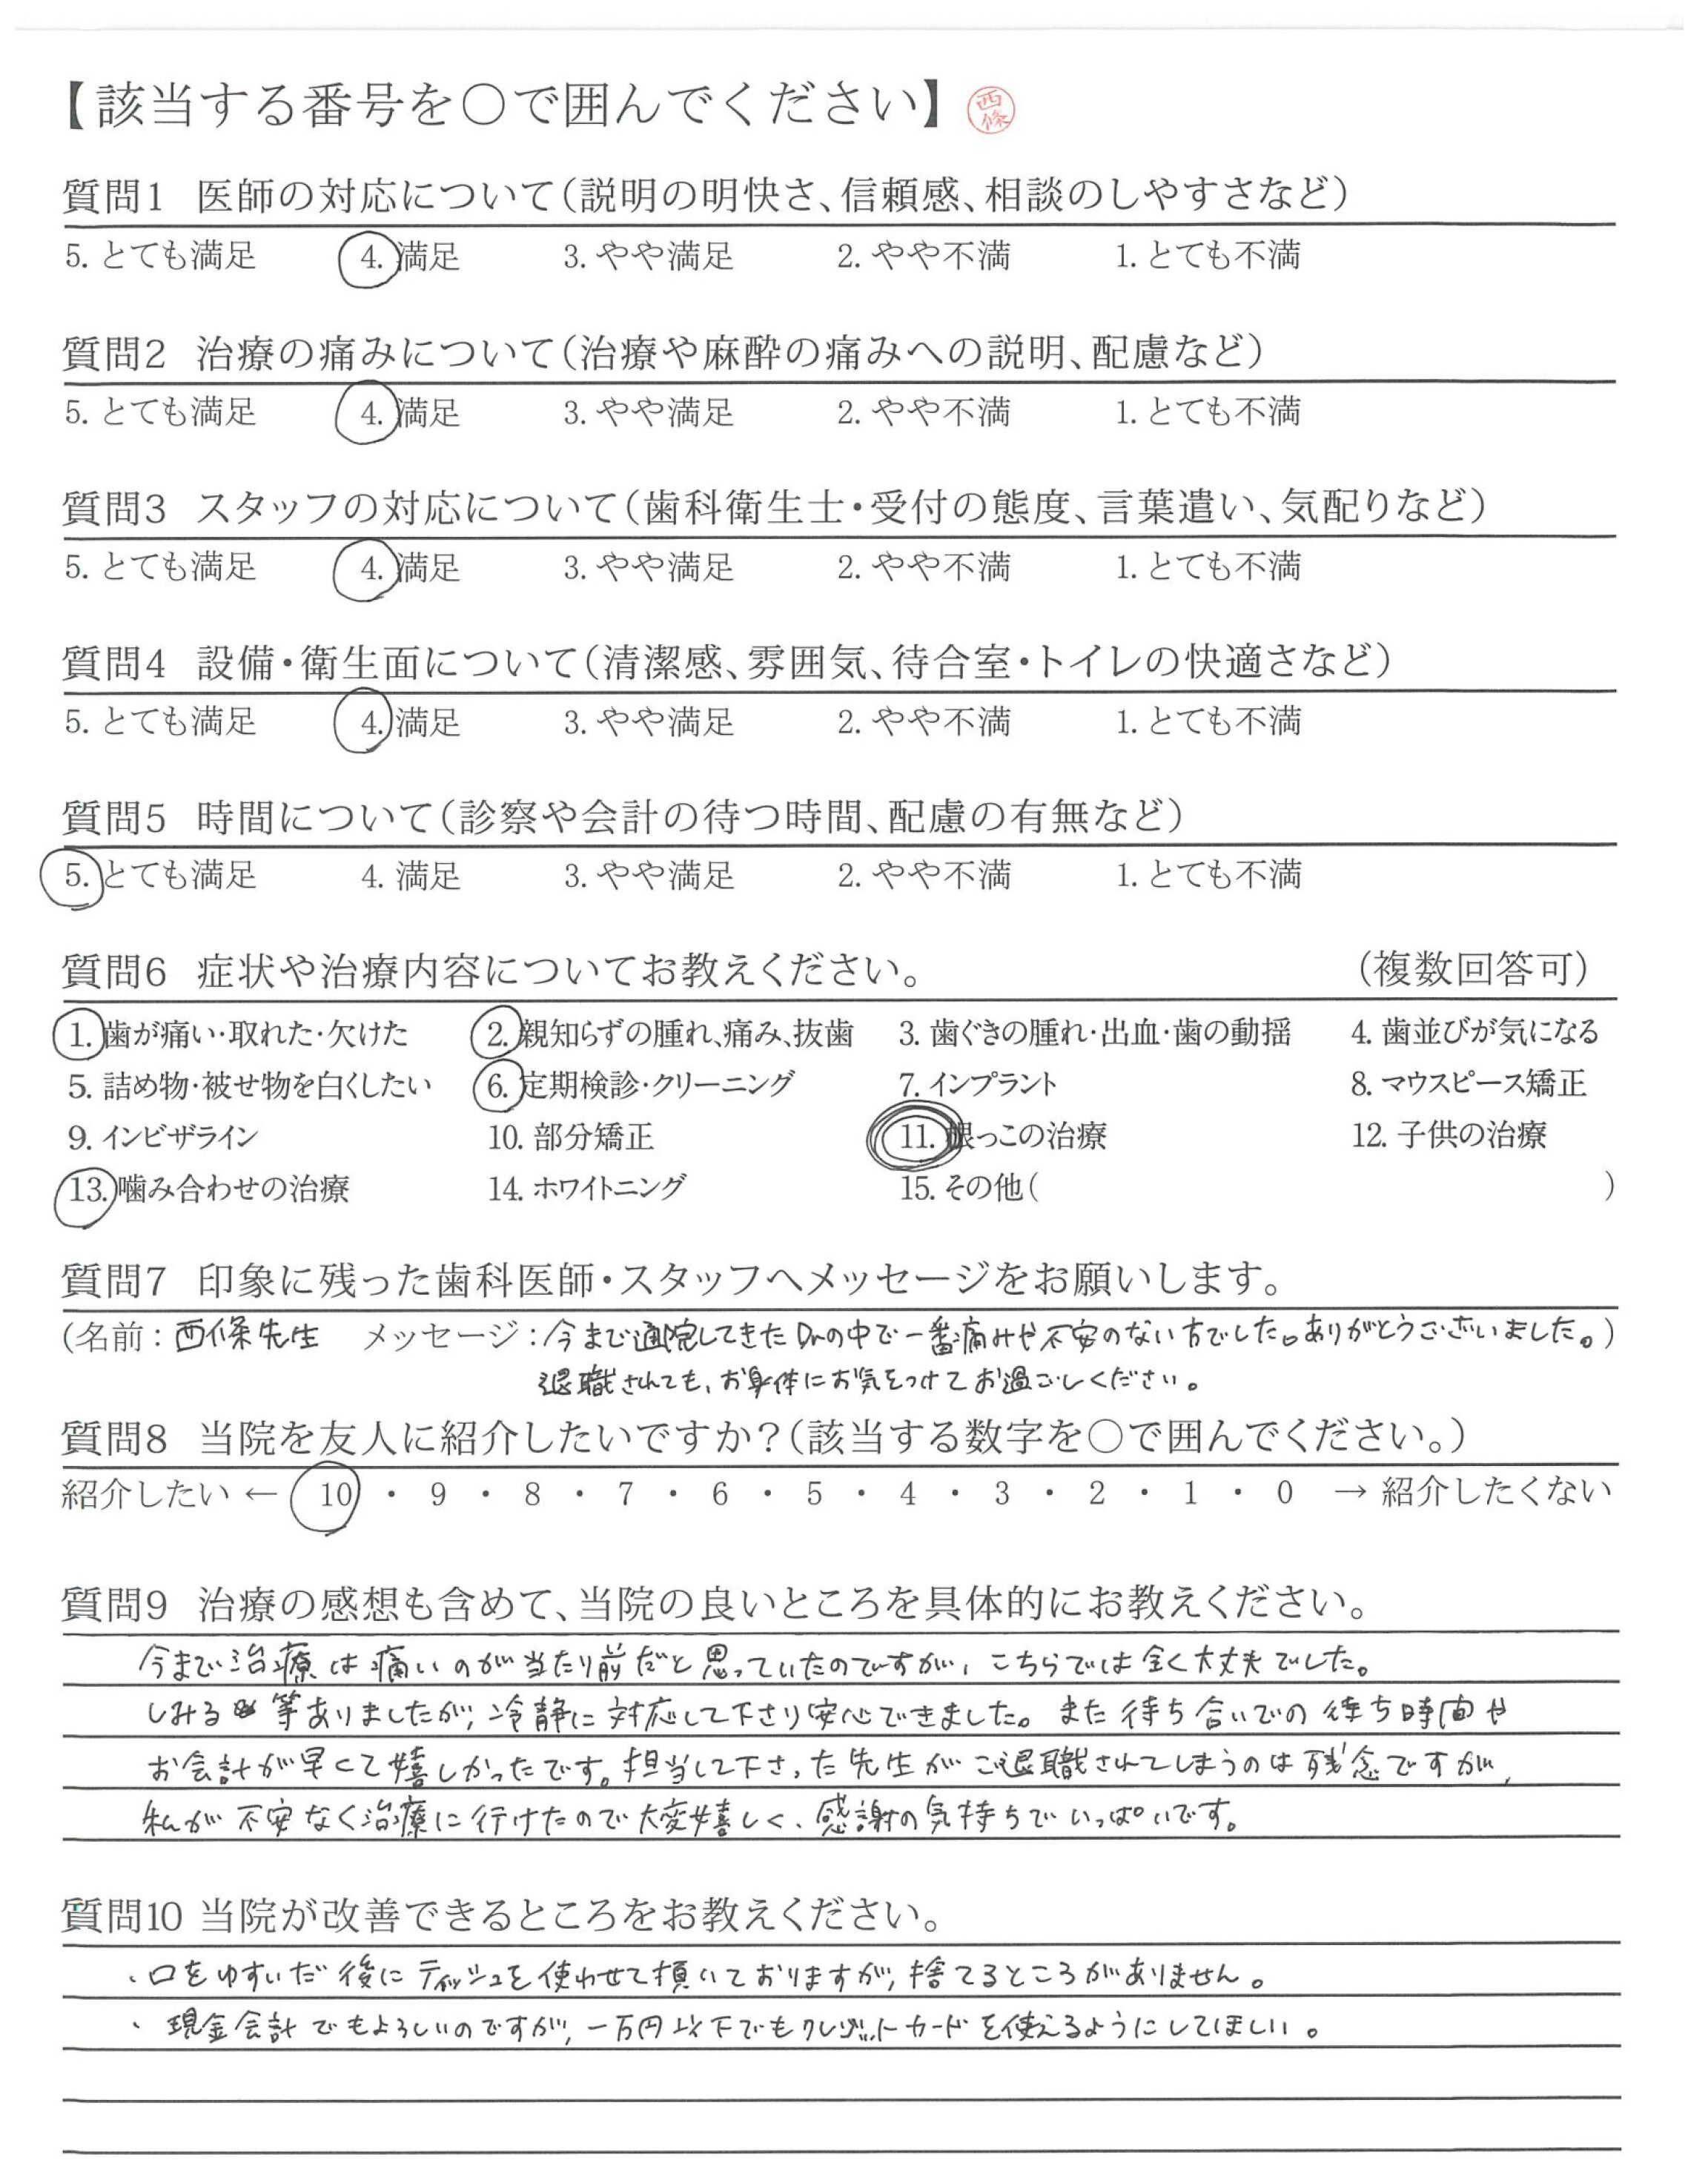 【該当する番号を○で囲んでください】 西條
質問1 医師の対応について(説明の明快さ、信頼感、相談のしやすさなど)
5. とても満足 4. 満足 3. やや満足 2. やや不満 1. とても不満
質問2 治療の痛みについて(治療や麻酔の痛みへの説明、配慮など)
5. とても満足 4. 満足 3. やや満足 2. やや不満 1. とても不満
質問3 スタッフの対応について(歯科衛生士・受付の態度、言葉遣い、気配りなど)
5. とても満足 4. 満足 3. やや満足 2. やや不満 1. とても不満
質問4 設備・衛生面について(清潔感、雰囲気、待合室・トイレの快適さなど)
5. とても満足 4. 満足 3. やや満足 2. やや不満 1. とても不満
質問5 時間について(診察や会計の待つ時間、配慮の有無など)
5. とても満足 4. 満足 3. やや満足 2. やや不満 1. とても不満
質問6 症状や治療内容についてお教えください。 (複数回答可)
1. 歯が痛い・取れた・欠けた 2. 親知らずの腫れ、痛み、抜歯 3. 歯ぐきの腫れ・出血・歯の動揺 4. 歯並びが気になる
5. 詰め物・被せ物を白くしたい 6. 定期検診・クリーニング 7. インプラント 8. マウスピース矯正
9. インビザライン 10. 部分矯正 11. 根っこの治療 12. 子供の治療
13. 噛み合わせの治療 14. ホワイトニング 15. その他( )
質問7 印象に残った歯科医師・スタッフへメッセージをお願いします。
(名前:西條先生 メッセージ:今まで通院してきたDrの中で一番痛みや不安のない方でした。ありがとうございました。)
退職されても、お身体にお気をつけてお過ごしください。
質問8 当院を友人に紹介したいですか?(該当する数字を○で囲んでください。)
紹介したい ← 10 ・ 9 ・ 8 ・ 7 ・ 6 ・ 5 ・ 4 ・ 3 ・ 2 ・ 1 ・ 0 → 紹介したくない
質問9 治療の感想も含めて、当院の良いところを具体的にお教えください。
今まで治療は痛いのが当たり前だと思っていたのですが、こちらでは全く大丈夫でした。
しみる等ありましたが、冷静に対応して下さり安心できました。また待ち合いでの待ち時間や
お会計が早くて嬉しかったです。担当して下さった先生がご退職されてしまうのは残念ですが、
私が不安なく治療に行けたので大変嬉しく、感謝の気持ちでいっぱいです。
質問10 当院が改善できるところをお教えください。
、口をゆすいだ後にティッシュを使わせて頂いておりますが、捨てるところがありません。
、現金会計でもよろしいのですが、一万円以下でもクレジットカードを使えるようにしてほしい。